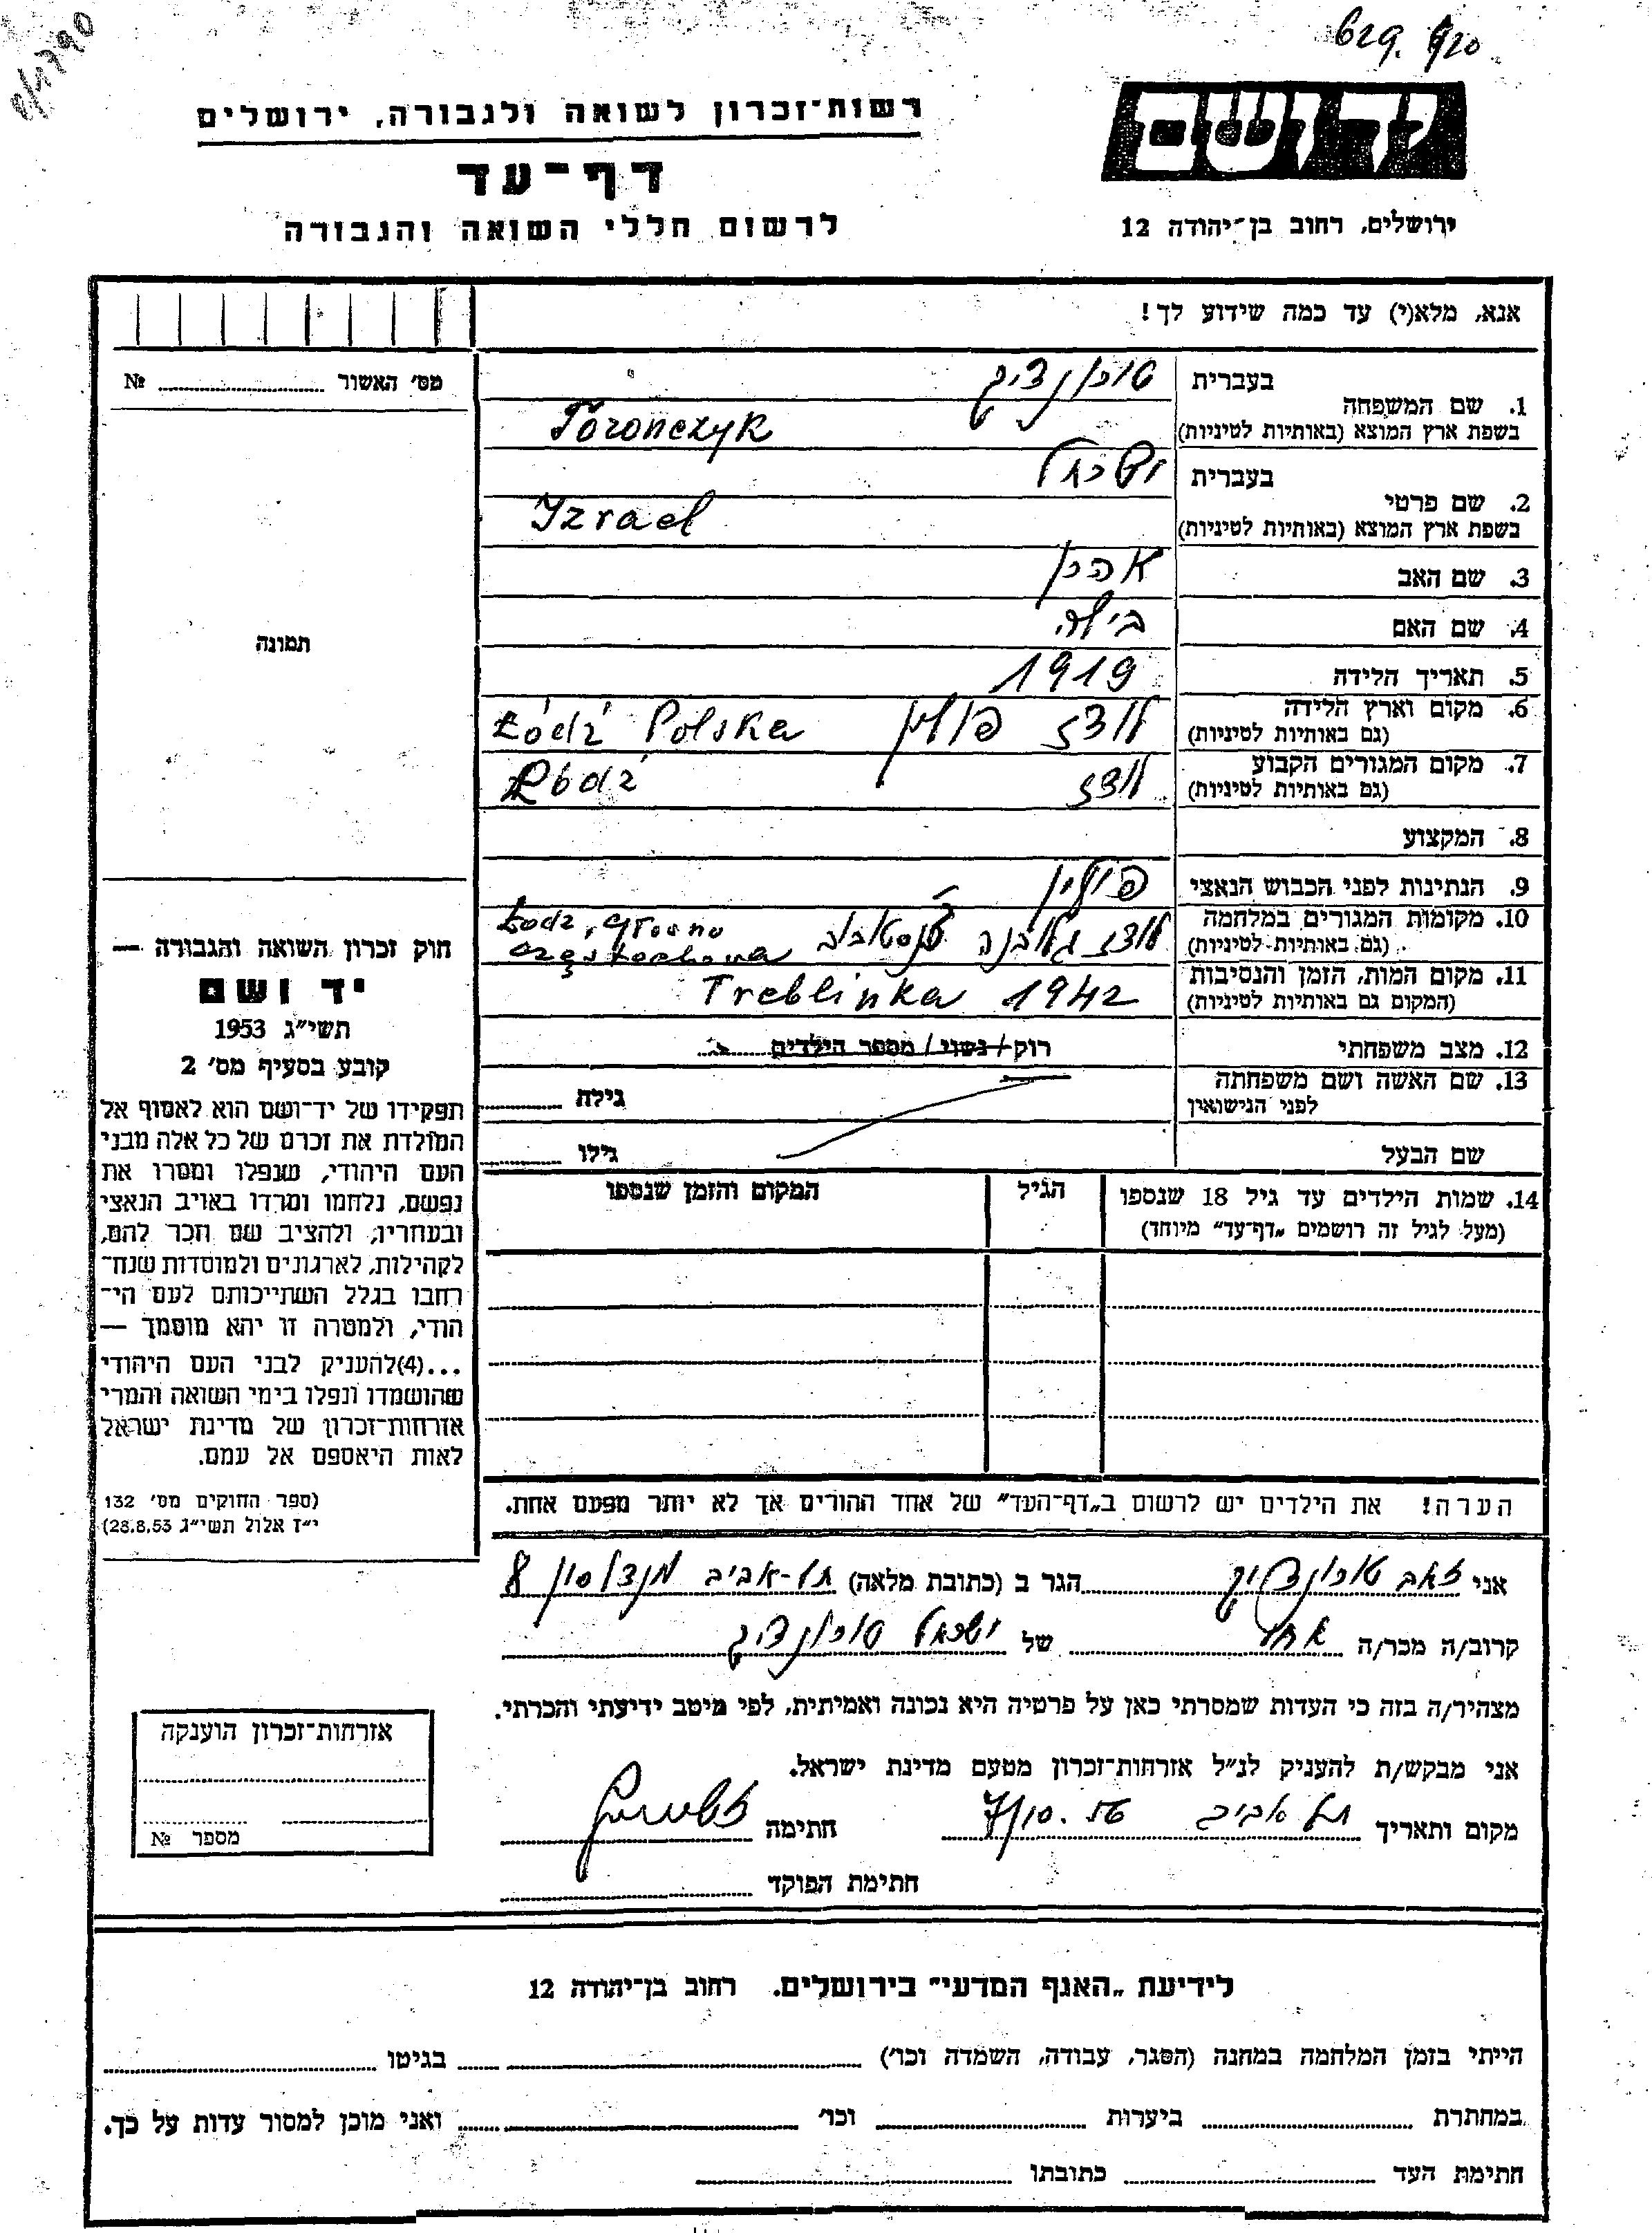 רשות־זכרון לשואה ולגבורה, ירושלים
דף־עד
לרשום חללי השואה והגבורה
יד ושם
ירושלים, רחוב בן־יהודה 12
אנא, מלא(י) עד כמה שידוע לך!
מס׳ האשור № 
תמונה
בעברית טורונציק
1. שם המשפחה
בשפת ארץ המוצא (באותיות לטיניות) Torończyk
בעברית ישראל
2. שם פרטי
בשפת ארץ המוצא (באותיות לטיניות) Izrael
3. שם האב אהרן
4. שם האם ביילה
5. תאריך הלידה 1919
6. מקום וארץ הלידה לודז פולין Łódź Polska
(גם באותיות לטיניות)
7. מקום המגורים הקבוע לודז Łódź
(גם באותיות לטיניות)
8. המקצוע
9. הנתינות לפני הכבוש הנאצי פולין
10. מקומות המגורים במלחמה לודז
(גם באותיות לטיניות) Łodz, Częstochowa
11. מקום המות, הזמן והנסיבות Treblinka 1942
(המקום גם באותיות לטיניות)
12. מצב משפחתי רוק / נשוי / מספר הילדים
13. שם האשה ושם משפחתה
לפני הנישואין גילה
שם הבעל גילו
14. שמות הילדים עד גיל 18 שנספו הגיל המקום והזמן שנספו
(מעל לגיל זה רושמים „דף־עד״ מיוחד)
הערה! את הילדים יש לרשום ב„דף־העד״ של אחד ההורים אך לא יותר מפעם אחת.
חוק זכרון השואה והגבורה —
יד ושם
תשי״ג 1953
קובע בסעיף מס׳ 2
תפקידו של יד־ושם הוא לאסוף אל
המולדת את זכרם של כל אלה מבני
העם היהודי, שנפלו ומסרו את
נפשם, נלחמו ומרדו באויב הנאצי
ובעוזריו, ולהציב שם וזכר להם,
לקהילות, לארגונים ולמוסדות שנח־
רבו בגלל השתייכותם לעם הי־
הודי, ולמטרה זו יהא מוסמך —
...(4)להעניק לבני העם היהודי
שהושמדו ונפלו בימי השואה והמרי
אזרחות־זכרון של מדינת ישראל
לאות היאספם אל עמם.
(ספר החוקים מס׳ 132
י״ז אלול תשי״ג 28.8.53)
אני זאב טורונציק הגר ב (כתובת מלאה) תל-אביב מנדלסון 8
קרוב/ה מכר/ה אחי של ישראל טורונציק
מצהיר/ה בזה כי העדות שמסרתי כאן על פרטיה היא נכונה ואמיתית, לפי מיטב ידיעתי והכרתי.
אני מבקש/ת להעניק לנ״ל אזרחות־זכרון מטעם מדינת ישראל.
מקום ותאריך תל אביב חתימה
חתימת הפוקד
אזרחות־זכרון הוענקה
מספר №
לידיעת „האגף המדעי״ בירושלים. רחוב בן־יהודה 12
הייתי בזמן המלחמה במחנה (הסגר, עבודה, השמדה וכו׳) בגיטו
במחתרת ביערות וכו׳ ואני מוכן למסור עדות על כך.
חתימת העד כתובתו